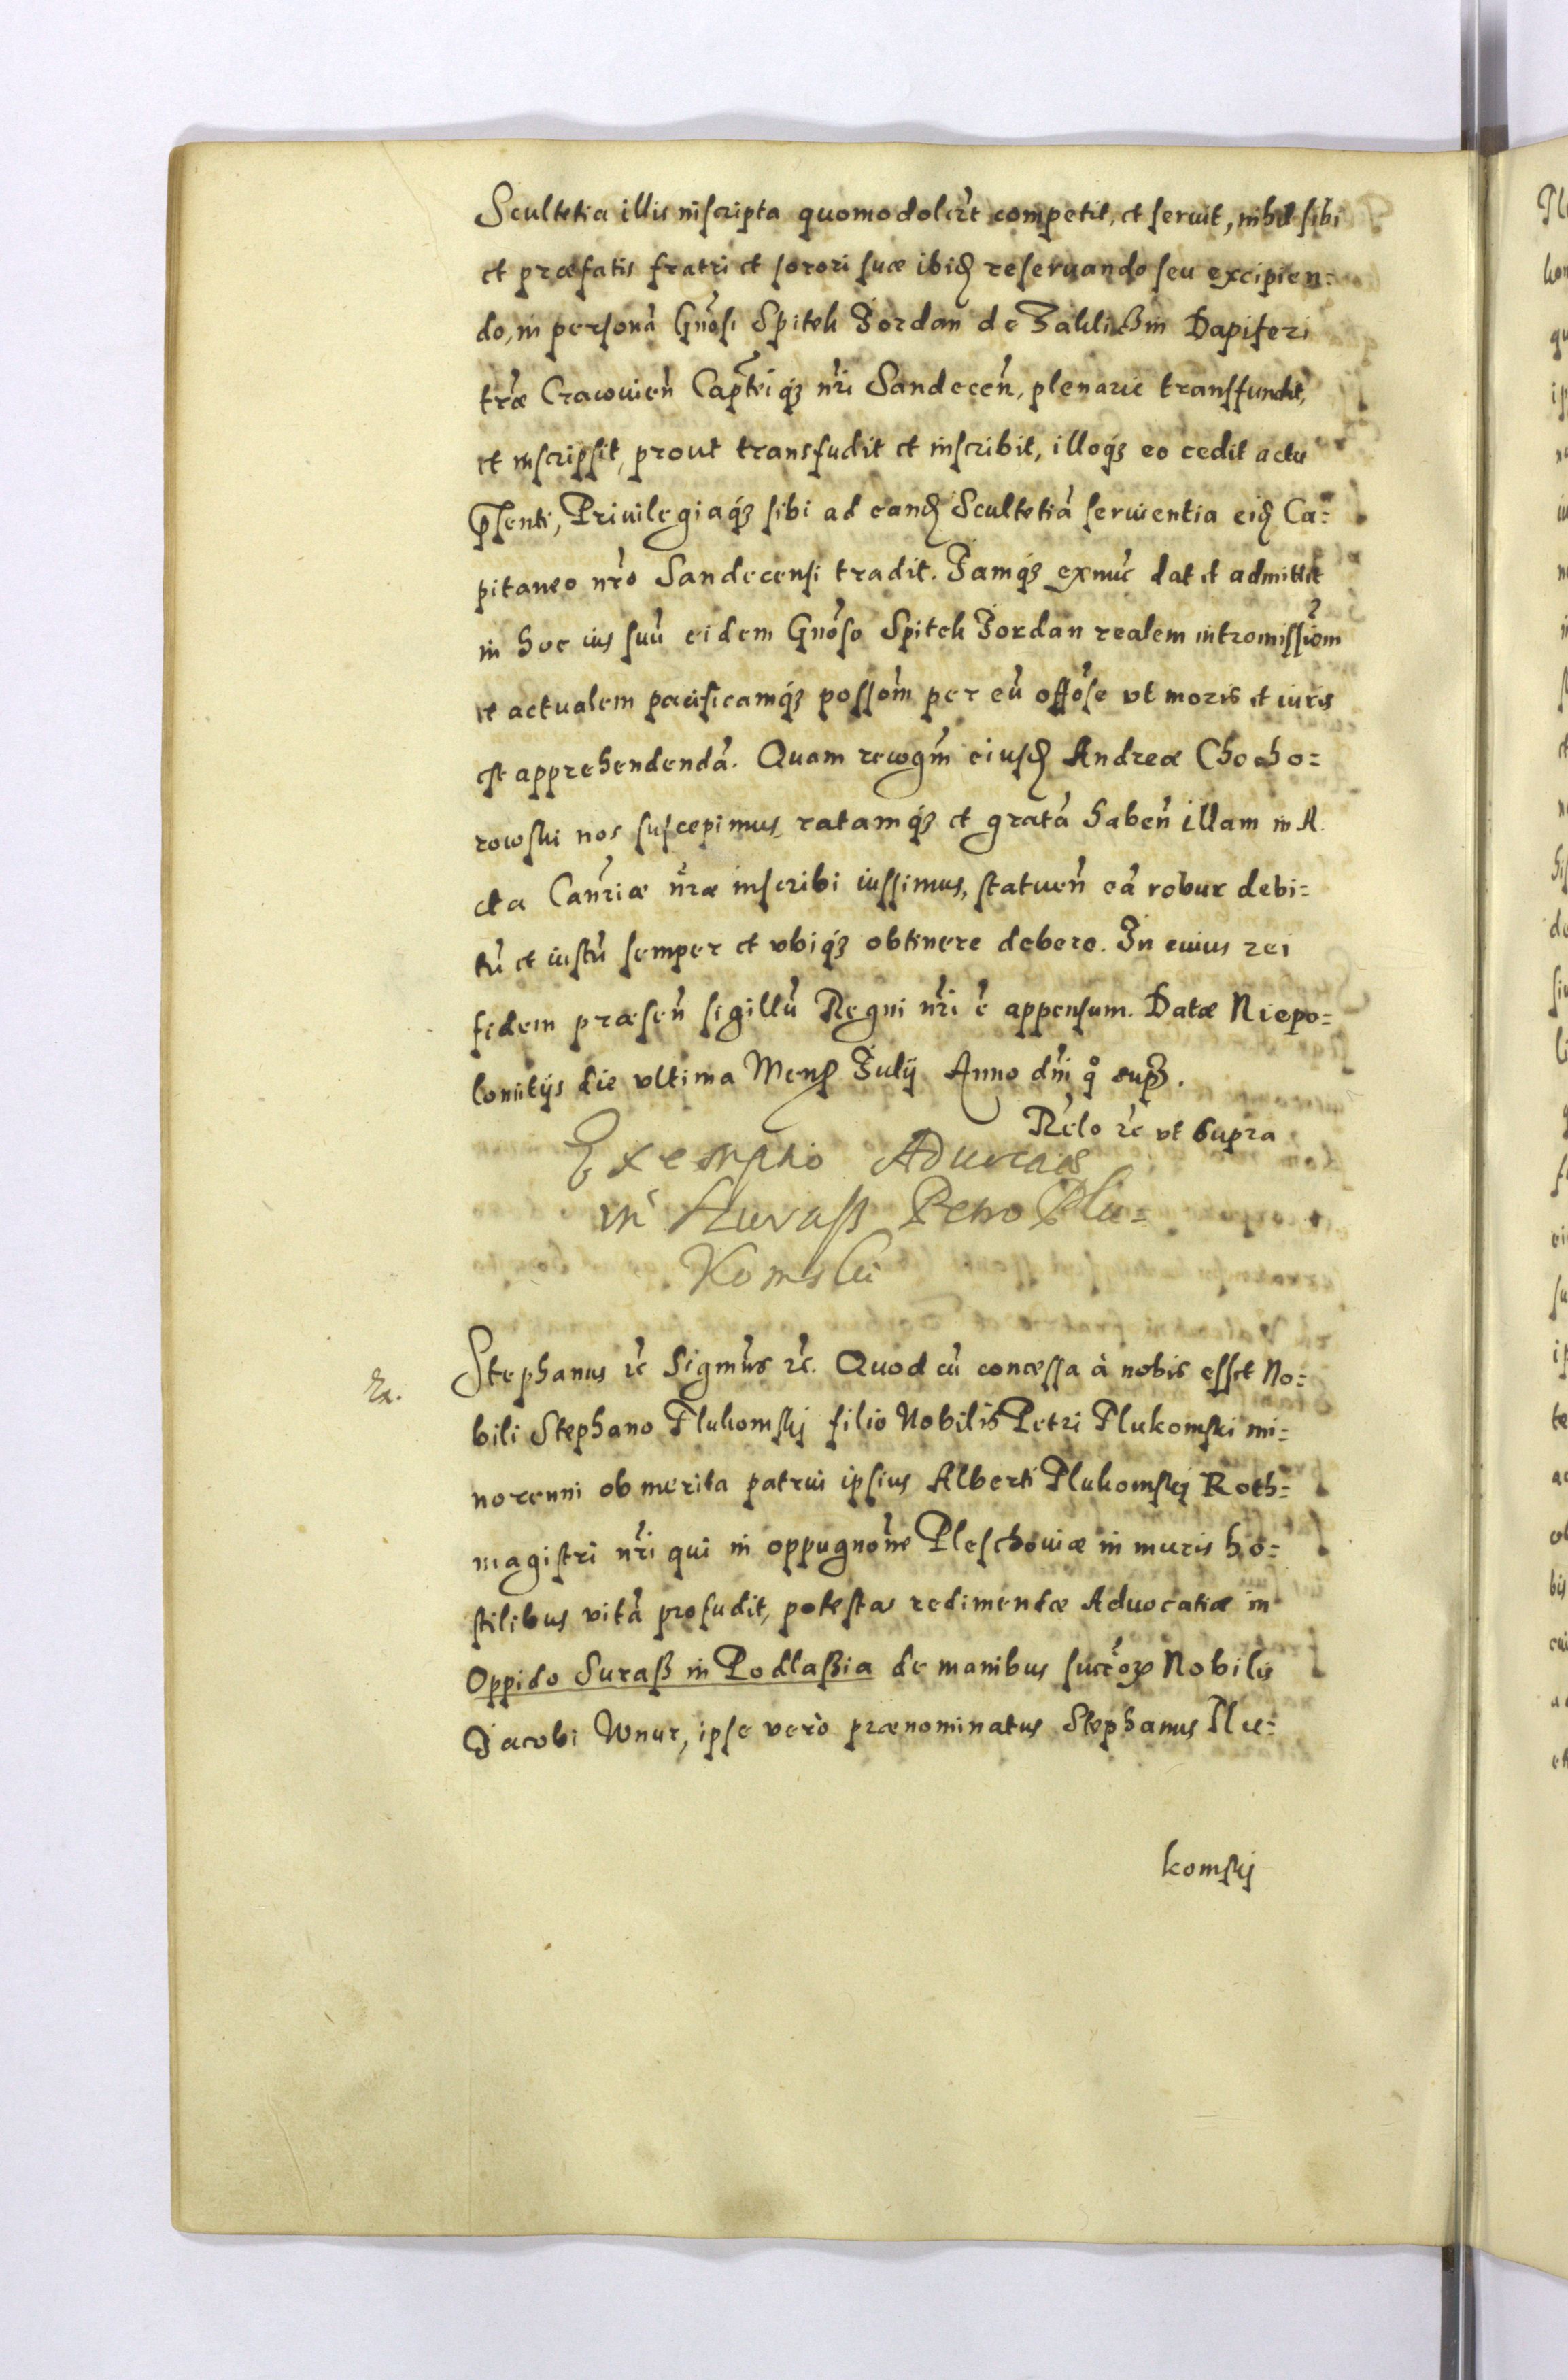 Scultetia illis inscripta quomodolꝫt competit, et seruit, nihil sibi
et præfatis fratri et sorori suæ ibid reseruando seu excipien=
do, in personã Gnosi Spitek Jordan de Zakliczin Dapiferi
træ Cracouien Captei qꝫ nri Sandecen, plenarie transfundit,
et inscripsit, prout transfudit et inscribit, illoqꝫ eo cedit actu
pñsenti, Priuilegiaqꝫ sibi ad eand Scultetiã seruientia eid Ca=
pitaneo nro Sandecensi tradit. Jamqꝫ exnuc dat et admittit
in hoc ius suũ eidem Gnoso Spitek Jordan realem intromissiom
et actualem pacificamqꝫ possom per eũ offose vt moris et iuris
est apprehendendã. Quam recogm eiusd Andreæ Chocho=
rowski nos suscepimus, ratamqꝫ et gratã haben illam in A
cta Canriæ nræ inscribi iussimus, statuen eã robur debi=
tũ et iustũ semper et vbiqꝫ obtinere debere. In cuius rei
fidem præsen sigillũ Regni nri ẽ appensum. Datæ Niepo=
lomitijs die vltima Mens Julij Anno dni qo supra.
Relo rc vt supra
Exemptio Aduocaes
in Suraß Petro Plu=
komski
Stephanus rc Sigmus rc. Quod cũ concessa à nobis esset No=
bili Stephano Plukomskj filio Nobilis Petri Plukomski mi=
norenni ob merita patrui ipsius Alberti Plukomskj Roth=
magistri nri qui in oppugnone Pleschouiæ in muris ho=
stilibus vitã profudit, potestas redimendæ Aduocatiæ in
Oppido Suraß in Podlaßia de manibus succorꝝ Nobilis
Jacobi Wnur, ipse verò prænominatus Stephanus Plu=
komskj